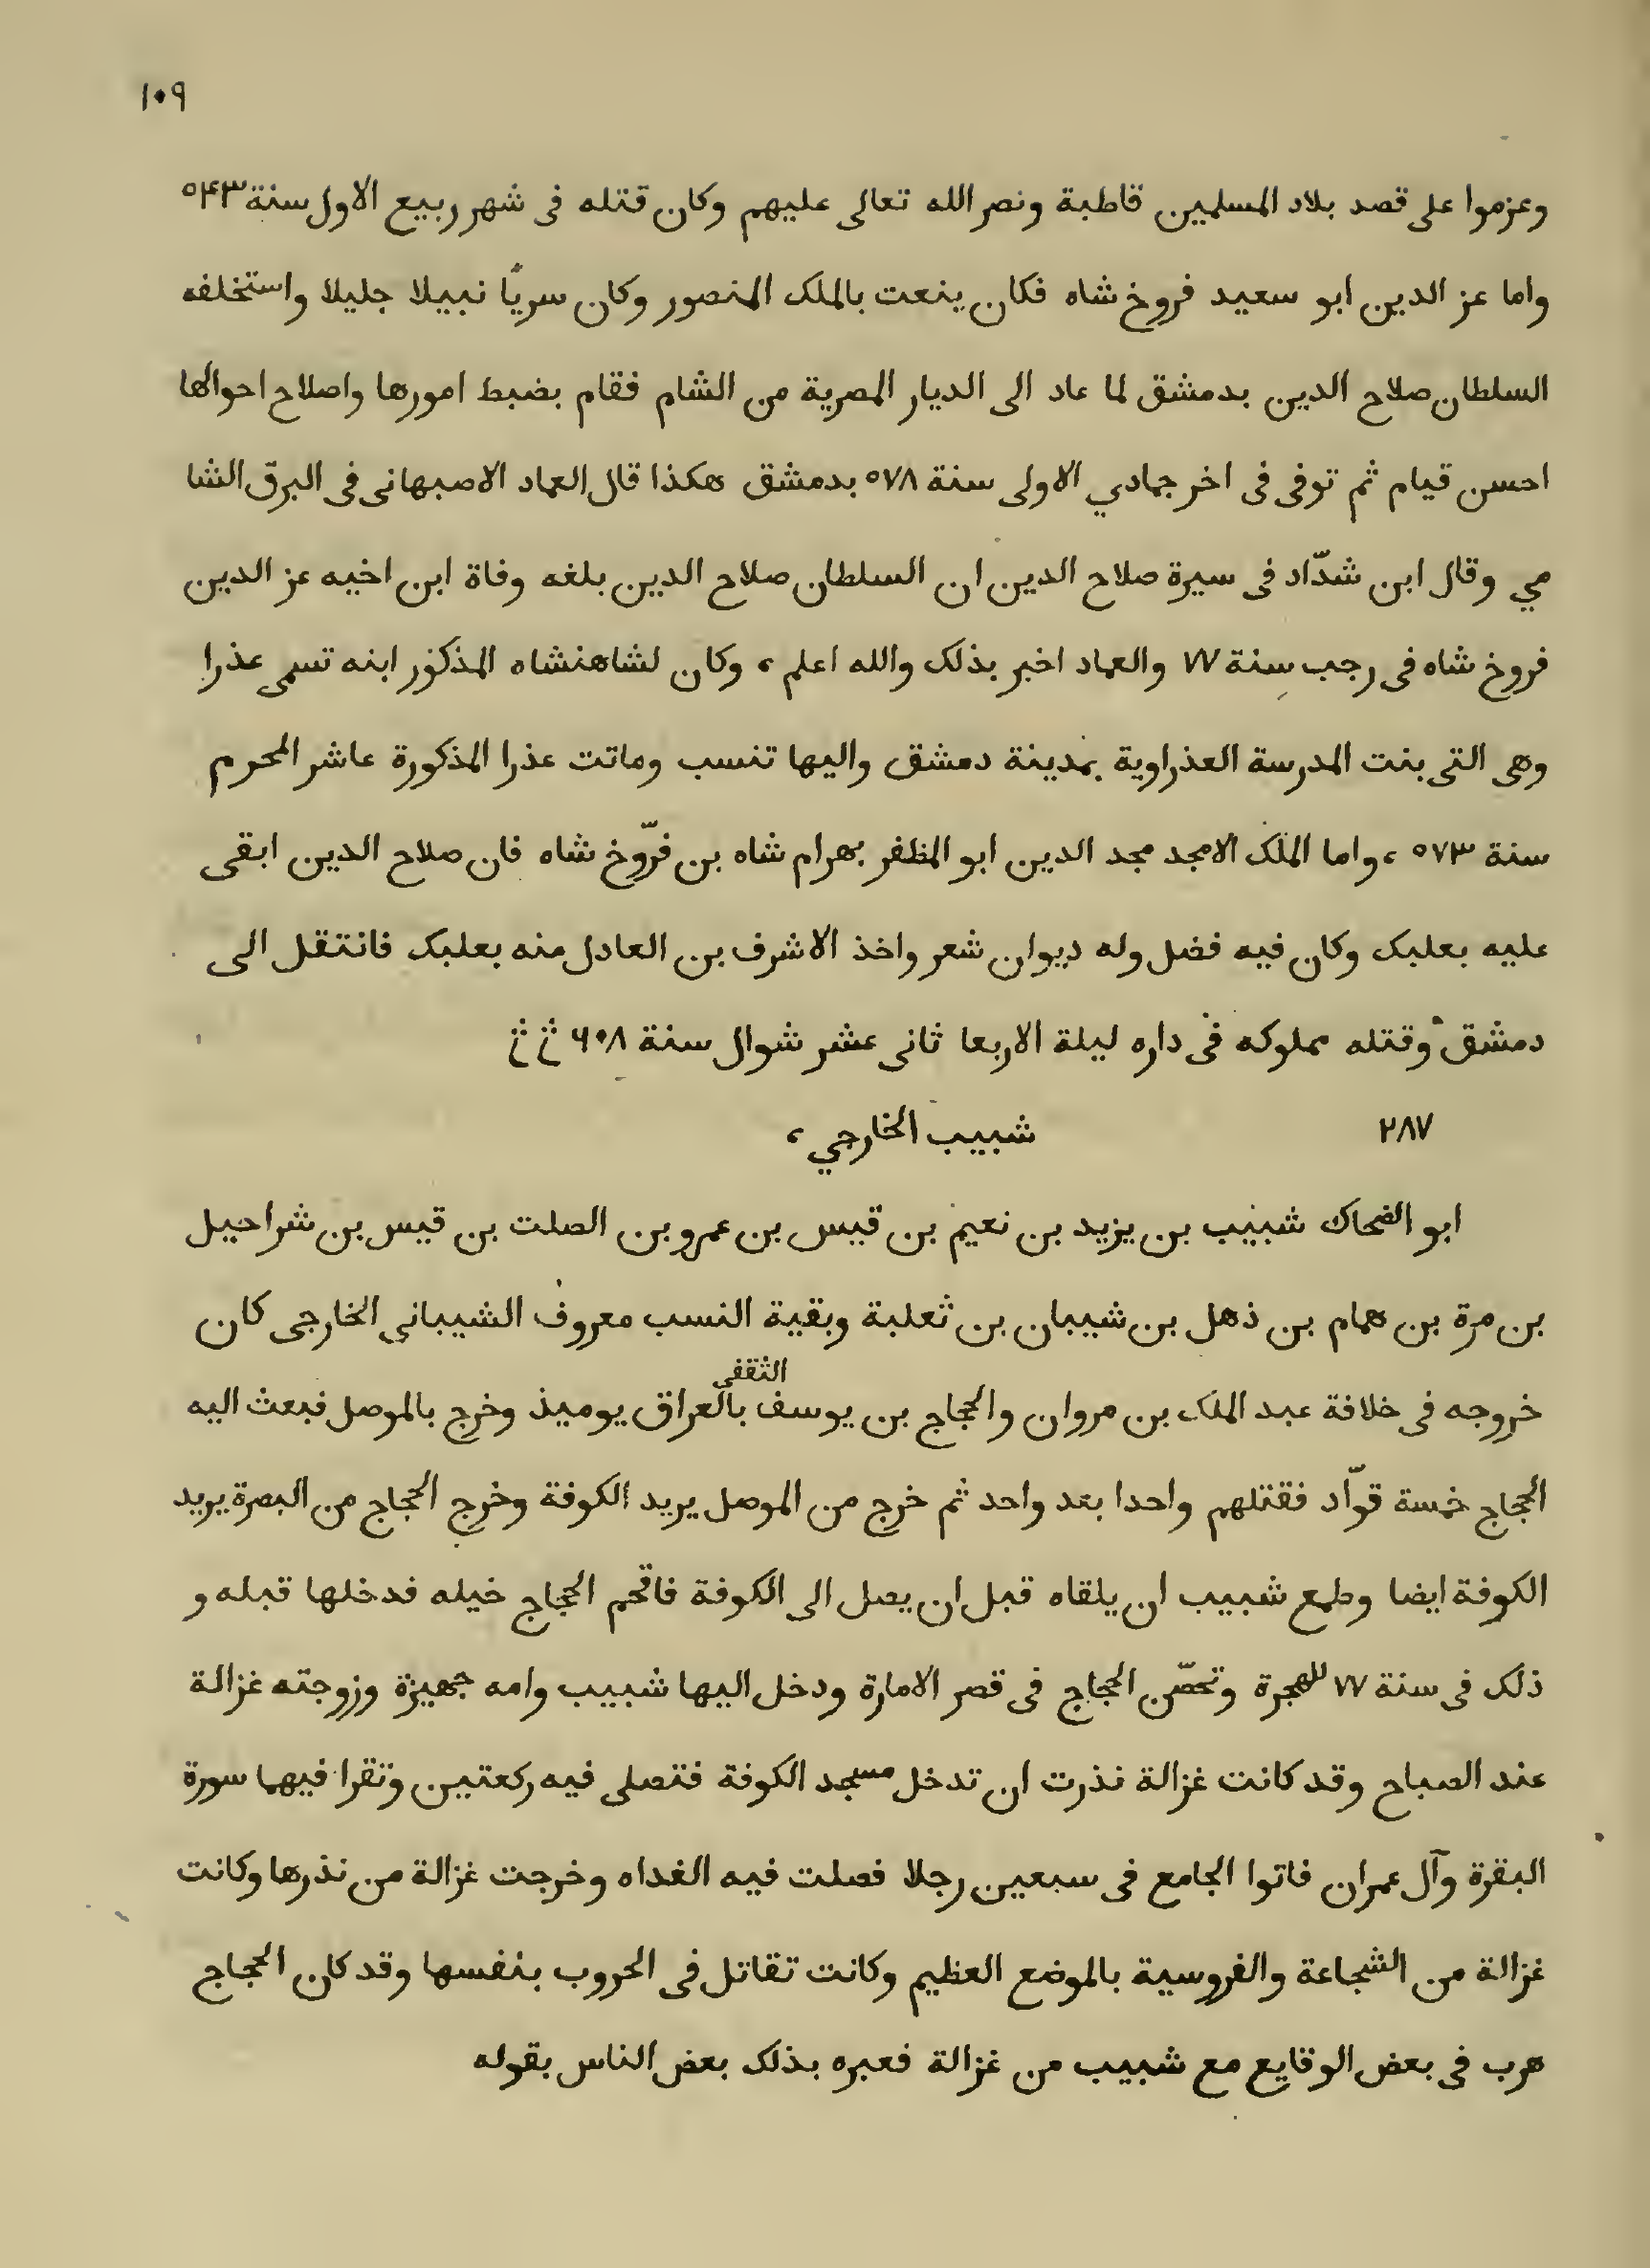 ١٠٩
وعزموا على قصد بلاد المسلمين قاطبة ونصر الله تعالى عليهم وكان قتله فى شهر ربيع الاول سنة ٥٤٣
واما عز الدين ابو سعيد فروخ شاه فكان ينعت بالملك المنصور وكان سريّا نبيلا جليلا واستخلفه
السلطان صلاح الدين بدمشق لما عاد الى الديار المصرية من الشام فقام بضبط امورها واصلاح احوالها
احسن قيام ثم توفى فى اخر جمادي الاولى سنة ٥٧٨ بدمشق هكذا قال العماد الاصبهانى فى البرق الشا
مي وقال ابن شدّاد فى سيرة صلاح الدين ان السلطان صلاح الدين بلغه وفاة ابن اخيه عز الدين
فروخ شاه فى رجب سنة ٧٧ والعماد اخبر بذلك والله اعلم ، وكان لشاهنشاه المذكور ابنه تسمى عذرا
وهى التى بنت المدرسة العذراوية بمدينة دمشق واليها تنسب وماتت عذرا المذكورة عاشر المحرم
سنة ٥٧٣ ، واما الملك الامجد مجد الدين ابو المظفر بهرام شاه بن فرّوخ شاه فان صلاح الدين ابقى
عليه بعلبك وكان فيه فضل وله ديوان شعر واخذ الاشرف بن العادل منه بعلبك فانتقل الى
دمشق وقتله مملوكه فى داره ليلة الاربعا ثانى عشر شوال سنة ٦٠٨
٢٨٧ شبيب الخارجي ،
ابو الضحاك شبيب بن يزيد بن نعيم بن قيس بن عمرو بن الصلت بن قيس بن شراحيل
بن مرة بن همام بن ذهل بن شيبان بن ثعلبة وبقية النسب معروف الشيبانى الخارجى كان
الثقفى
خروجه فى خلافة عبد الملك بن مروان والحجاج بن يوسف بالعراق يوميذ وخرج بالموصل فبعث اليه
الحجاج خمسة قوّاد فقتلهم واحدا بعد واحد ثم خرج من الموصل يريد الكوفة وخرج الحجاج من البصرة يريد
الكوفة ايضا وطمع شبيب ان يلقاه قبل ان يصل الى الكوفة فاقحم الحجاج خيله فدخلها قبله و
ذلك فى سنة ٧٧ للهجرة وتحصّن الحجاج فى قصر الامارة ودخل اليها شبيب وامه جهيزة وزوجته غزالة
عند الصباح وقد كانت غزالة نذرت ان تدخل مسجد الكوفة فتصلى فيه ركعتين وتقرا فيهما سورة
البقرة وآل عمران فاتوا الجامع فى سبعين رجلا فصلت فيه الغداه وخرجت غزالة من نذرها وكانت
غزالة من الشجاعة والفروسية بالموضع العظيم وكانت تقاتل فى الحروب بنفسها وقد كان الحجاج
هرب فى بعض الوقايع مع شبيب من غزالة فعبره بذلك بعض الناس بقوله